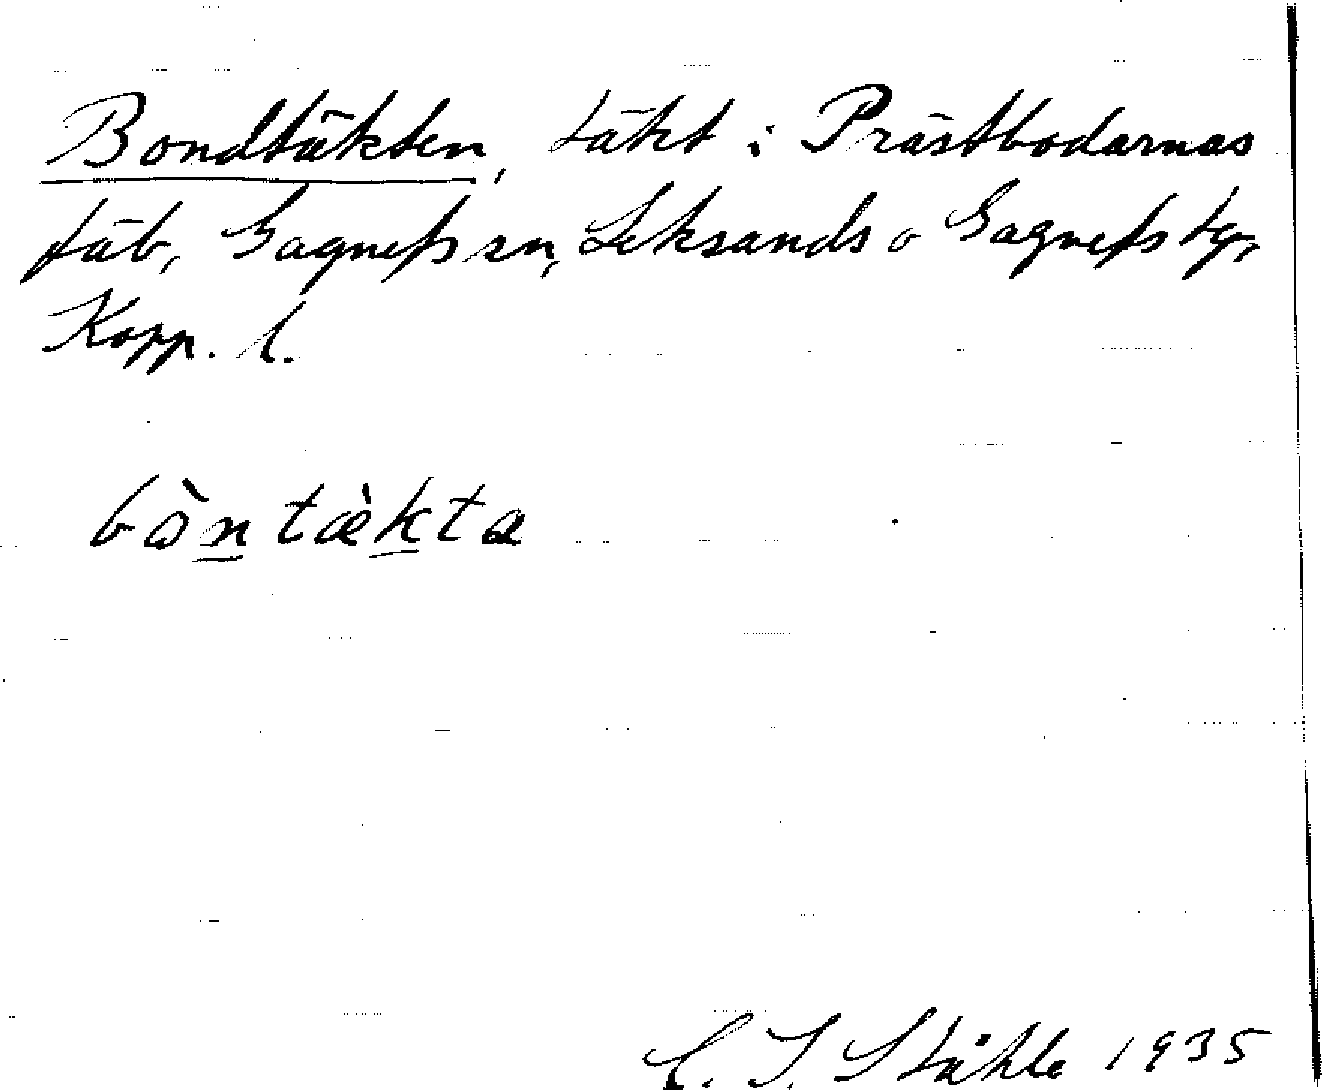 Bondtäkten, täkt i Prästbodarnas
fäb, Gagnefs sn, Leksands o Gagnefs tg,
Kopp. l.
bò̱n tæ̀ḵta
C. I. Ståhle 1935